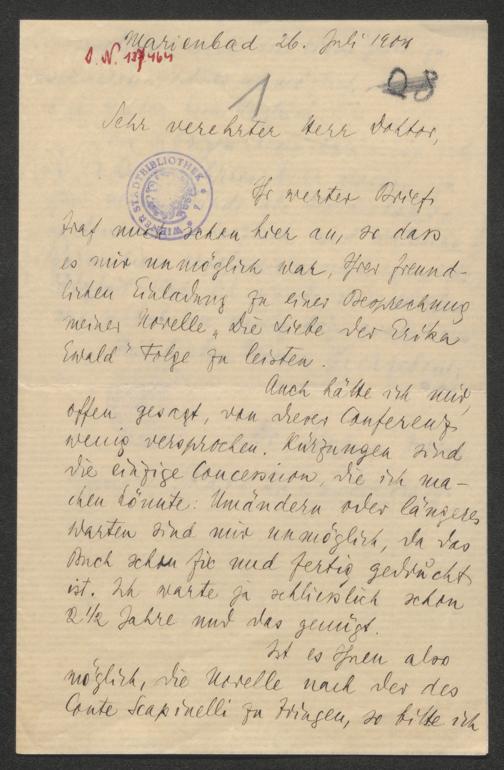 Marienbad 26. Juli 1904
J. N. 137464
1
Q8
Sehr verehrter Herr Doktor,
WIENER STADTBIBLIOTHEK
Ihr werter Brief
traf mich schon hier an, so dass
es mir unmöglich war, Ihrer freund-
lichen Einladung zu einer Besprechung
meiner Novelle „Die Liebe der Erika
Ewald" Folge zu leisten.
Auch hätte ich mir,
offen gesagt, von dieser Conferenz
wenig versprochen. Kürzungen sind
die einzige Concession, die ich ma-
chen könnte: Umändern oder längeres
Warten sind mir unmöglich, da das
Buch schon fix und fertig gedruckt
ist. Ich warte ja schliesslich schon
2 1/2 Jahre und das genügt.
Ist es Ihnen also
möglich, die Novelle nach der des
Conte Scapinelli zu bringen, so bitte ich